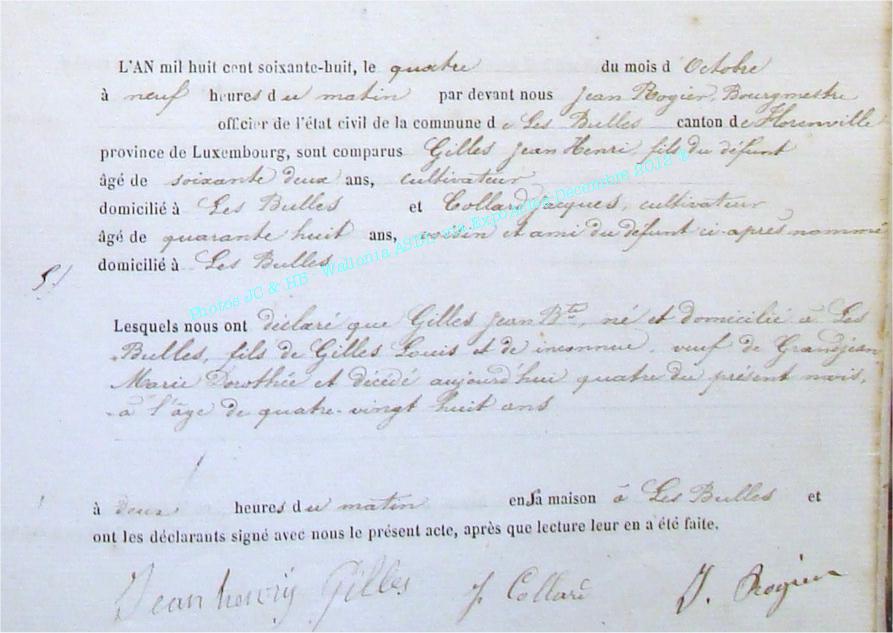 L'AN mil huit cent soixante-huit, le quatre du mois d Octobre
à neuf heures du matin par devant nous Jean Rogier, Bourgmestre
officier de l'état civil de la commune de Les Bulles canton de Florenville
province de Luxembourg, sont comparus Gilles Jean Henri, fils du défunt
âgé de soixante deux ans, cultivateur
domicilié à Les Bulles et Collard Jacques, cultivateur
âgé de quarante huit ans, voisin et ami du défunt ci-après nommé
domicilié à Les Bulles
Photos JC & HB Wallonia ASBL via Expo Actes Decembre 2012
Lesquels nous ont déclaré que Gilles Jean Bte, né et domicilié à Les
Bulles, fils de Gilles Louis et de inconnue, veuf de Grandjean
Marie Dorothée et décédé aujourd'hui quatre du présent mois,
à l'âge de quatre-vingt huit ans
à deux heures du matin en sa maison à Les Bulles et
ont les déclarants signé avec nous le présent acte, après que lecture leur en a été faite.
Jean henry Gilles J. Collard J. Rogier